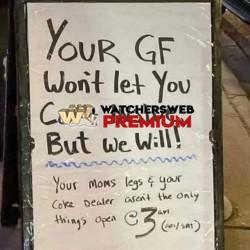 YOUR GF
Won't let You
C
WATCHERSWEB
PREMIUM
But we Will!
Your moms legs & your
Coke Dealer aren't the only
things open @ 3am
(Fri/Sat)